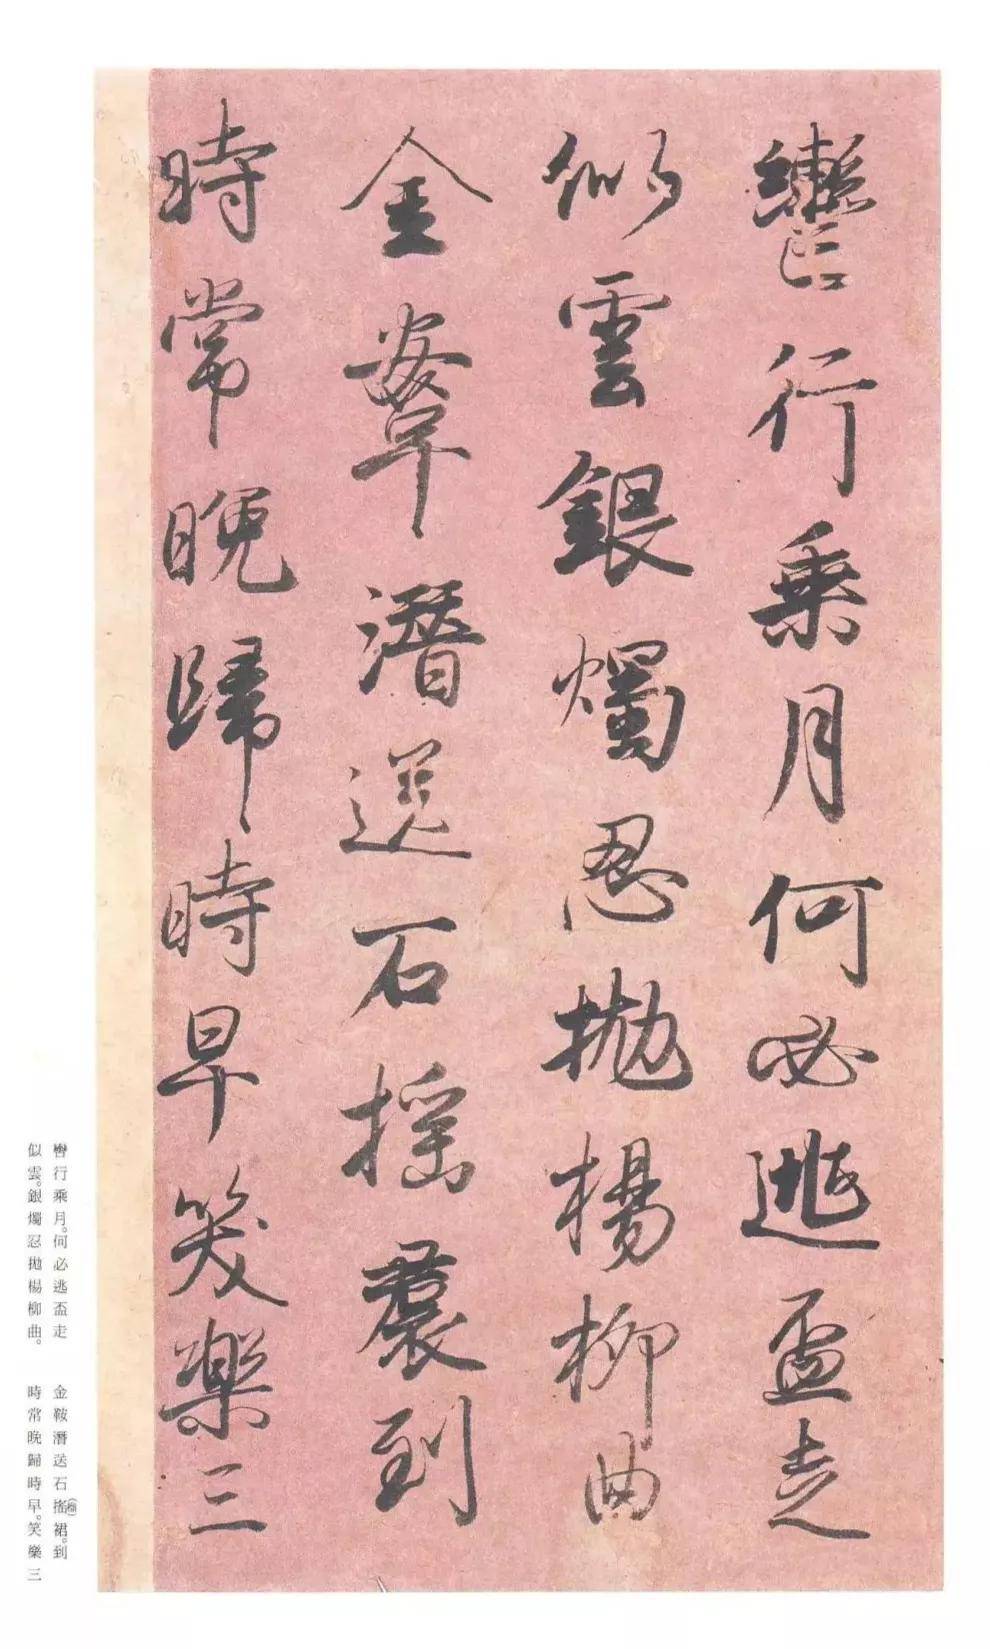 轡行乘月何必逃盃走
似雲銀燭忍拋楊柳曲
金鞍潛送石搖裙到
時常晚歸時早笑樂三
轡行乘月。何必逃盃走
似雲。銀燭忍拋楊柳曲。
金鞍潛送石搖裙。到
時常晚歸時早。笑樂三